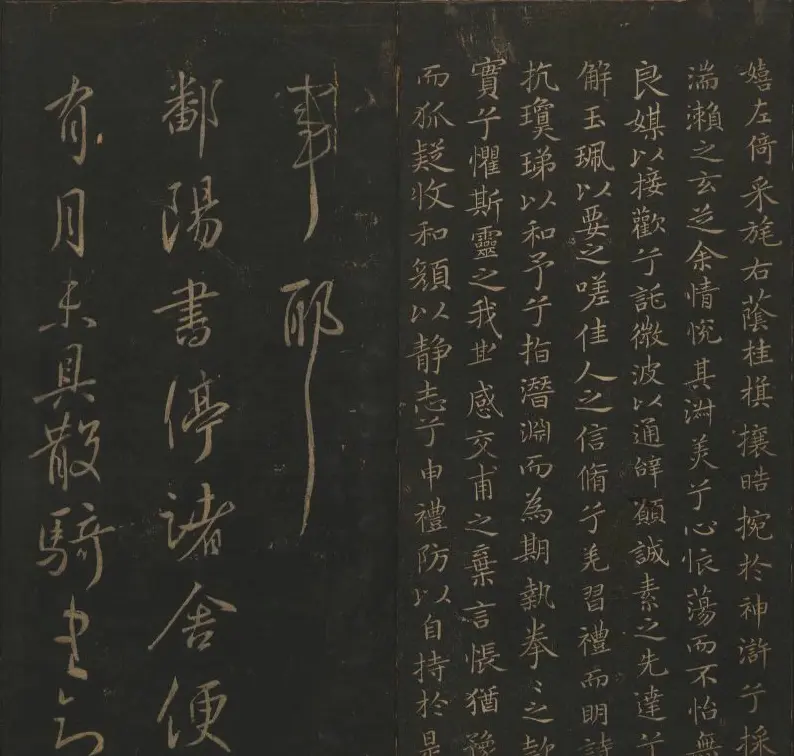 嬉左倚采旄右蔭桂旗攘皓捥於神滸兮採
湍瀨之玄芝余情悅其淑美兮心振蕩而不怡無
良媒以接歡兮託微波以通辭願誠素之先達兮
解玉珮以要之嗟佳人之信脩兮羌習禮而明詩
抗瓊珶以和予兮指潛淵而為期執拳〻之款
實兮懼斯靈之我欺感交甫之棄言悵猶豫
而狐疑收和顏以静志兮申禮防以自持於是
事耶
鄱陽書停諸舍便
有月未具散騎